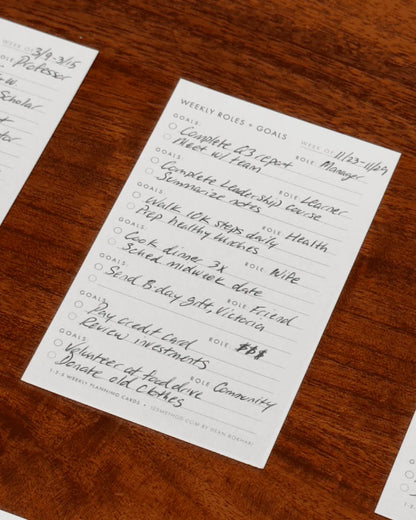 WEEK OF 3/9-3/15
ROLE Professor
Scholar
WEEKLY ROLES + GOALS
WEEK OF 11/23-11/29
GOALS: ROLE: Manager
Complete Q3 report
Meet w/ team
GOALS: ROLE: Learner
Complete Leadership course
Summarize notes
GOALS: ROLE: Health
Walk 10k steps daily
Prep healthy lunches
GOALS: ROLE: Wife
Cook dinner 3x
Sched midweek date
GOALS: ROLE: Friend
Send B-day gift, Victoria
GOALS: ROLE: $$$
Pay credit card
Review investments
GOALS: ROLE: Community
Volunteer at food drive
Donate old clothes
1-3-5 WEEKLY PLANNING CARDS • GSMETHOD.COM BY DEAN BOKHARI